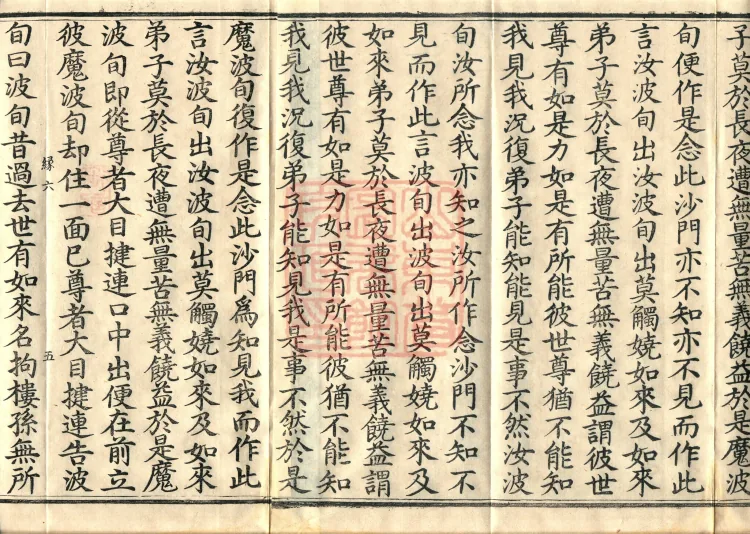 子莫於長夜遭無量苦無義饒益於是魔波
旬便作是念此沙門亦不知亦不見而作此
言汝波旬出汝波旬出莫觸嬈如來及如來
弟子莫於長夜遭無量苦無義饒益謂彼世
尊有如是力如是有所能彼世尊猶不能知
我見我況復弟子能知能見是事不然汝波
旬汝所念我亦知之汝所作念沙門不知不
見而作此言波旬出波旬出莫觸嬈如來及
如來弟子莫於長夜遭無量苦無義饒益謂
彼世尊有如是力如是有所能彼猶不能知
我見我況復弟子能知見我是事不然於是
魔波旬復作是念此沙門爲知見我而作此
言汝波旬出汝波旬出莫觸嬈如來及如來
弟子莫於長夜遭無量苦無義饒益於是魔
波旬即從尊者大目揵連口中出便在前立
彼魔波旬却住一面已尊者大目揵連告波
縁六 五
旬曰波旬昔過去世有如來名拘樓孫無所